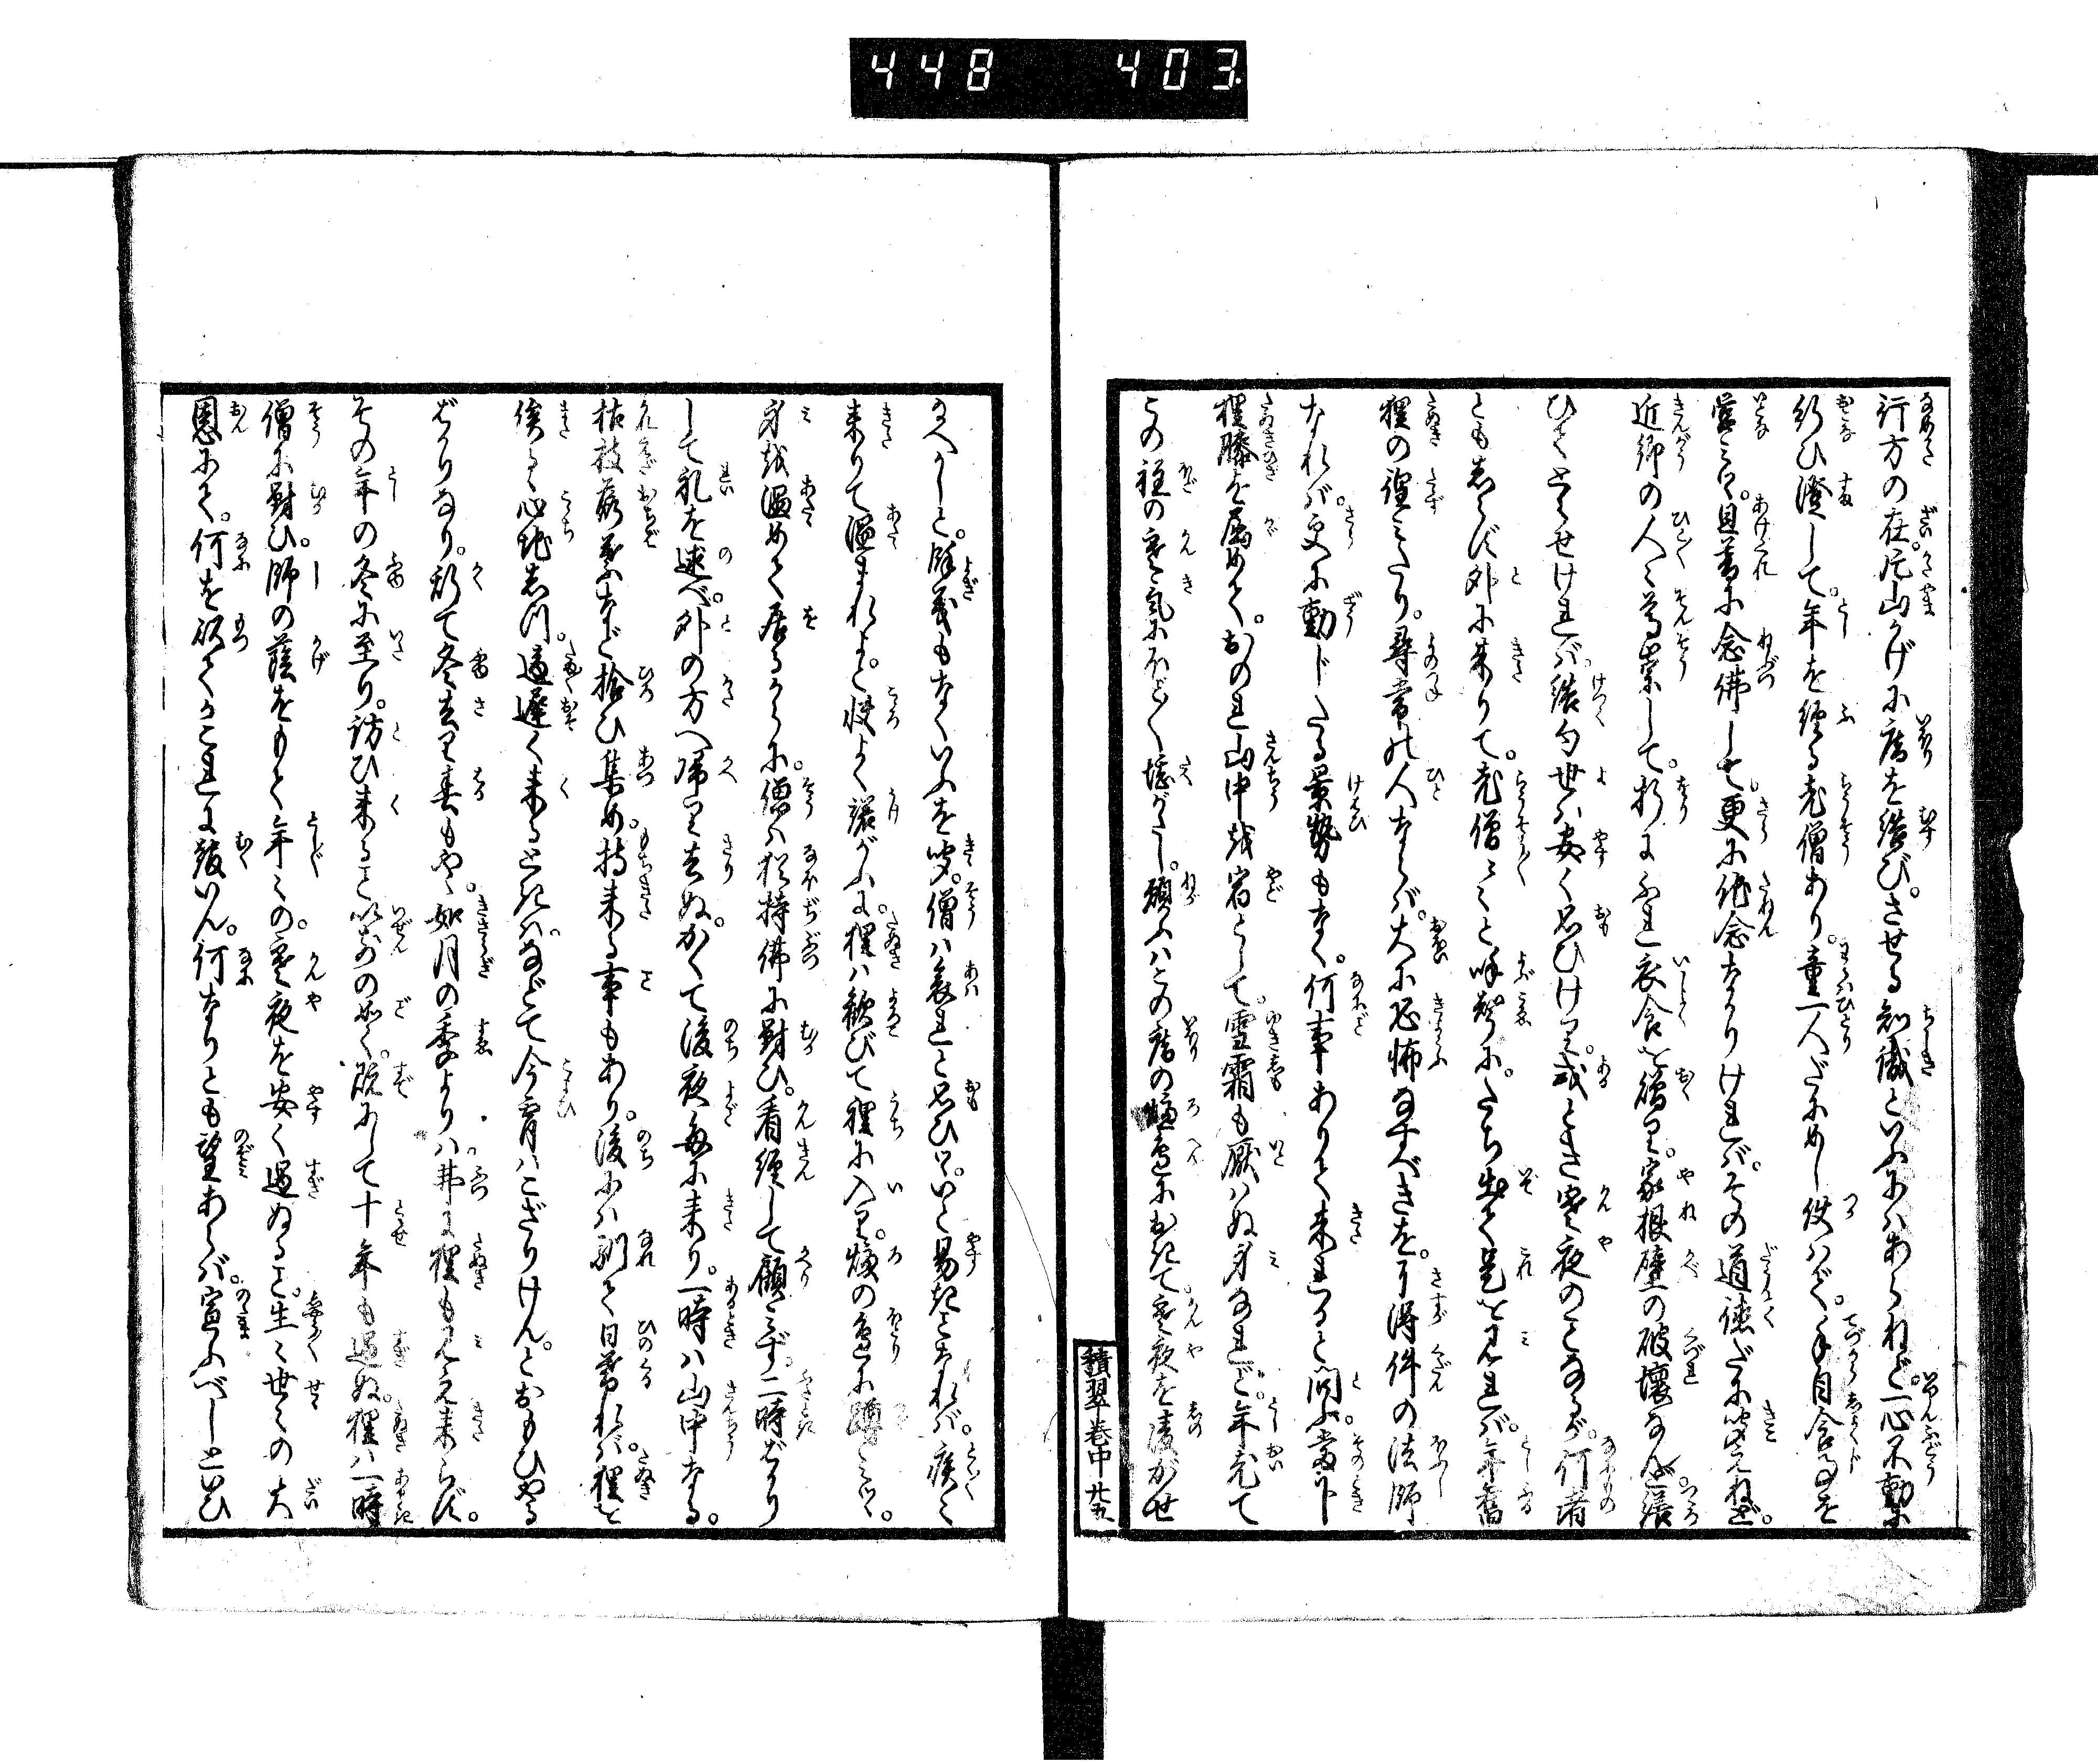 448 403
行方の在。片山かげに庵を結び。させる知識といふにはあらねど。一心不動に
行ひ澄して。年を経る老僧あり。童一人だにめし使はで。手自食事を
営みつ。旦暮に念佛して更に他念なかりければ。その道徳だに聞えねど。
近郷の人々尊崇して。折にふれ衣食を贈り。家根壁の破壊なんど繕
ひてとらせければ結句世は安く思ひけり。或とき寒夜のことなるが。何者
ともしらず外に来りて。老僧々々と呼声に。たち出て是を見れば。年舊
狸の彳みたり。尋常の人ならば。大に恐怖なすべきを。可得件の法師
なれば。更に動じたる景勢もなく。何事ありて来れると問ふ。當下
狸膝を屈めて。おのれ山中を宿として。雪霜も厭はぬ身なれど。年老て
この程の寒氣にほどほど堪がたし。願ふはこの庵の爐邊におきて。寒夜を凌がせ
積翠巻中 廿五
給へかしと。餘義もなくいふを聞。僧は哀れと思ひつ。いと易きことなれば。疾々
来りて温まれよ。と快よく諾がふに。狸は歓びて裡に入り。爐の邊に蹲まりつ。
身を温めて居るからに。僧は猶持佛に對ひ。看経して顧みず。二時ばかり
して礼を述べ。外の方へ帰り去ぬ。かくて後夜毎に来り。一時は山中なる。
枯枝落葉など拾ひ集め。持来る事もあり。後には馴て日暮れば狸を
俟る心地しつ。適遅く来るときは。などて今宵はこざりけん。とおもひやる
ばかりなり。斯て冬去り春もや丶。如月の季よりは。弗に狸も見え来らず。
その年の冬に至り。訪ひ来ること以前の如く。既にして十年も過ぬ。狸は一時
僧に對ひ。師の蔭をもて年々の。寒夜を安く過ぬること。生々世々の大
恩にて。何を以てかこれに報いん。何なりとも望あらば。宣ふべしといひ